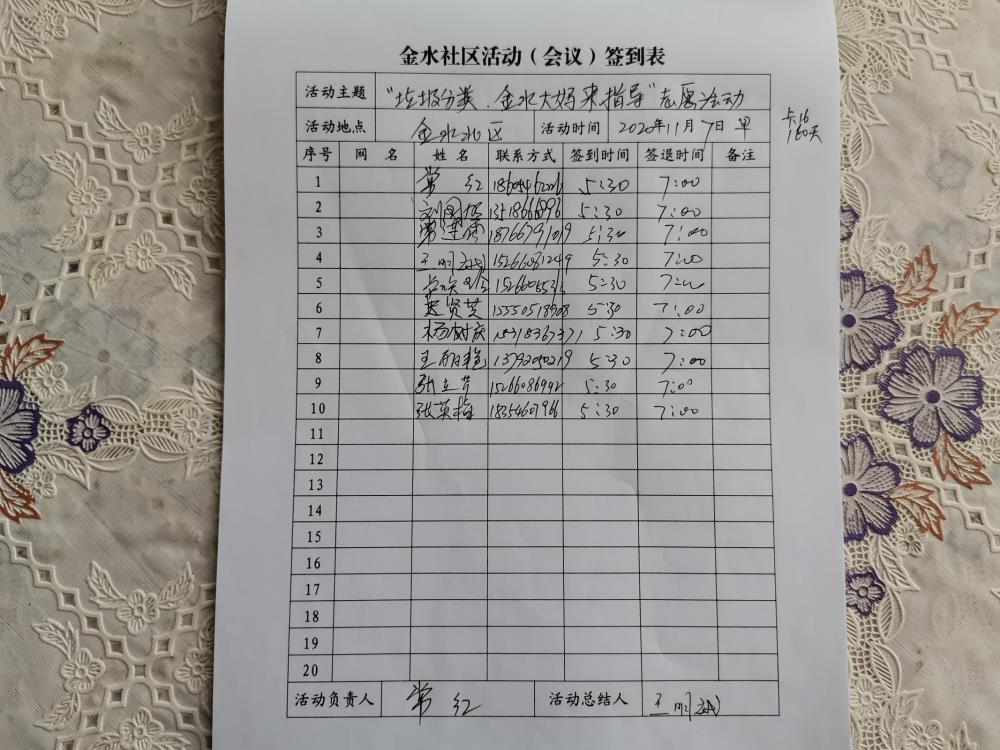 金水社区活动（会议）签到表
活动主题 "垃圾分类.金水大妈来指导"志愿活动
活动地点 金水北区 活动时间 2020年11月7日 早
卡16
180天
序号 网 名 姓 名 联系方式 签到时间 签退时间 备注
1 常 红 5:30 7:00
2 5:30 7:00
3 18766791019 5:30 7:00
4 15266081249 5:30 7:00
5 5:30 7:00
6 15550518908 5:30 7:00
7 杨树庆 5:30 7:00
8 王丽艳 5:30 7:00
9 张立芹 15266086992 5:30 7:00
10 张英梅 18354607966 5:30 7:00
11
12
13
14
15
16
17
18
19
20
活动负责人 常 红 活动总结人 王明